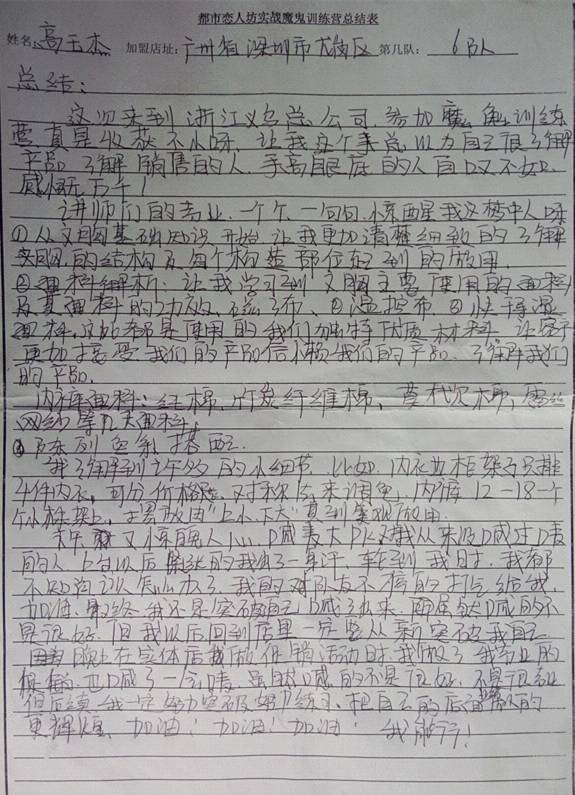 都市恋人坊实战魔鬼训练营总结表
姓名:高玉杰 加盟店址:广州省深圳市大 区 第几队: 6队
总结:
这次来到浙江义乌总公司,参加魔鬼训练
营真是收获不小呀,让我这个 总以为自己很了解
产品,了解销售的人,手高眼底的人自叹不如,
感慨万千!
讲师们的专业,一个个、一句句惊醒我这梦中人呀
①从文胸基础知识开始,让我更加清楚细致的了解
文胸的结构及每个构造部位起到的作用。
②面料解析:让我学习到文胸主要使用的面料
及其面料的功效, 布、②温控布、③快干湿
面料,这些都是使用的我们独特优质材料 让客户
更加接受我们的产品信赖我们的产品、了解我们
的产品。
内裤面料: 棉、竹炭纤维棉、莫代尔棉、 丝
网纱等几大面料。
③陈列色系搭配
我了解到许多的小细节,比如,内衣 柜架子只排
4件内衣,可分价格 、对称 来调色,内裤12-18一个
小格架上,摆放由“上小下大”直到美观作用。
又惊魂人心,喊麦大PK对我从来没喊过麦
的人上台以后 的我出了一身汗,轮到我时,我都
不知道该怎么办了,我的对队友不停的打气给我,
加油,最终我还是突破自己喊了出来,而虽然喊的不
是很好,但我以后回到店里一定要从新突破我自己
晚上在实体店我做促销活动时,我做了我专业的
,也喊了一会麦,虽然喊的不是很好,不是很专业
但后续我一定努力突破,努力练习,把自己的店 做的
更辉煌,加油!加油!加油! 我能行!